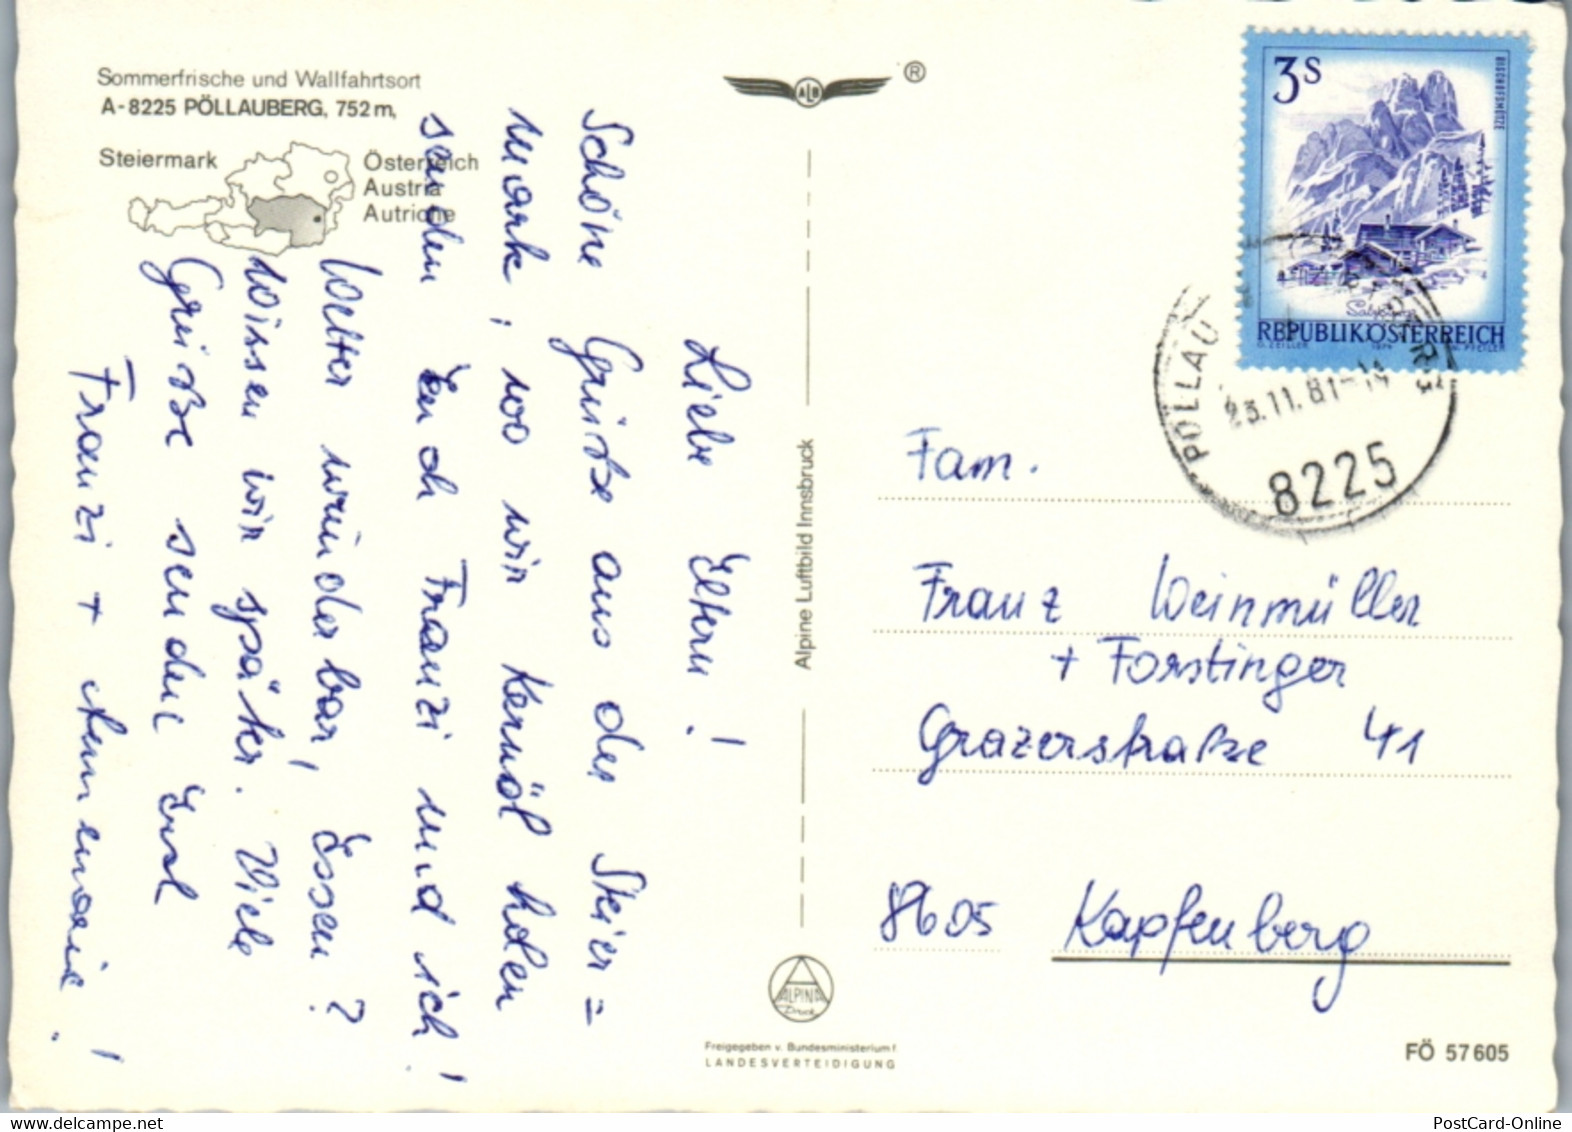 Sommerfrische und Wallfahrtsort
A-8225 PÖLLAUBERG, 752 m,
Steiermark
Österreich
Austria
Autriche
Liebe Eltern!
Schöne Grüße aus der Steier=
mark, wo wir Kernöl holen
senden Euch Franzi und ich!
Wetter wunderbar, Essen?
Wissen wir später. Viele
Grüße senden Euch
Franzi + Annemarie!
ALB
®
Alpine Luftbild Innsbruck
ALPINA
Druck
Freigegeben v. Bundesministerium f.
LANDESVERTEIDIGUNG
3 S
BISCHOFSMÜTZE
Salzburg
REPUBLIK ÖSTERREICH
O. ZEILLER
W. PFEILER
PÖLLAU
23.11.81-14
8225
Fam.
Franz Weinmüller
+ Forstinger
Grazerstraße 41
8605 Kapfenberg
FÖ 57605
PostCard-Online